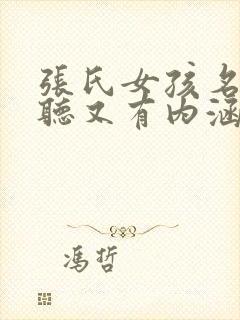 張氏女孩名
聽又有内涵
馮哲